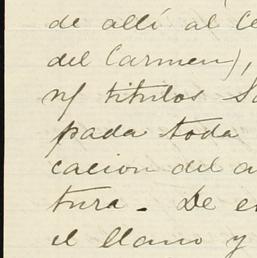 de allí al Ce
del Carmen),
n/ titulos Sa
pada toda
cacion del a
tura. De e
el llano y